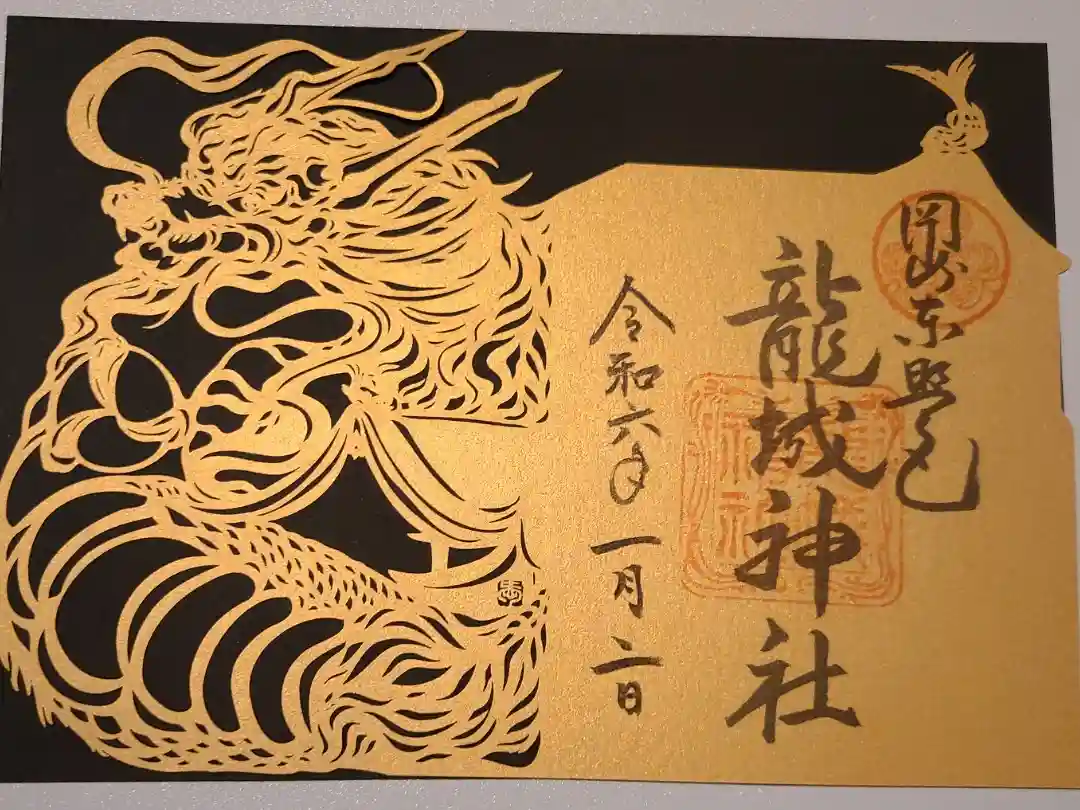 岡崎東照宮
龍城神社
令和六年一月二日